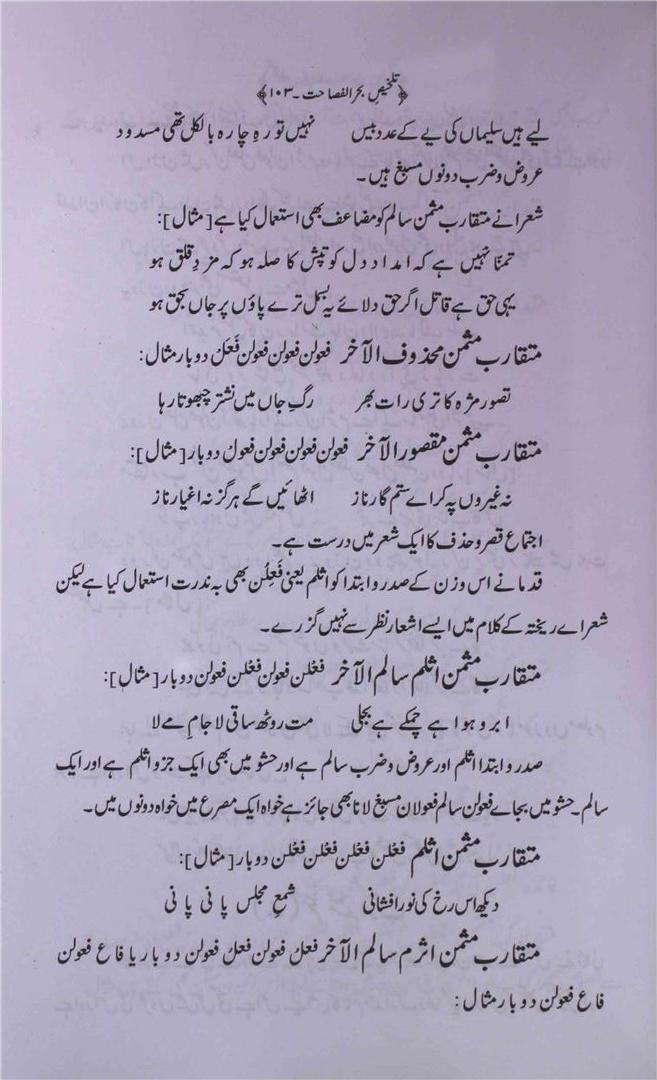 ﴿تلخیصِ بحر الفصاحت۔ ۱۰۳﴾
لیے ہیں سلیماں کی یے کے عدد بیس نہیں تو رہِ چارہ بالکل تھی مسدود
عروض و ضرب دونوں مسبغ ہیں۔
شعرا نے متقارب مثمن سالم کو مضاعف بھی استعمال کیا ہے [مثال]:
تمنّا نہیں ہے کہ امداد دل کو تپش کا صلہ ہو کہ مزدِ قلق ہو
یہی حق ہے قاتل اگر حق دلائے یہ بسمل ترے پاؤں پر جاں بحق ہو
متقارب مثمن محذوف الآخر فعولن فعولن فعولن فَعَل دو بار مثال:
تصور مژہ کا تری رات بھر رگِ جاں میں نشتر چبھوتا رہا
متقارب مثمن مقصور الآخر فعولن فعولن فعولن فعول دو بار [مثال]:
نہ غیروں پہ کر اے ستم گار ناز اٹھائیں گے ہرگز نہ اغیار ناز
اجتماع قصر و حذف کا ایک شعر میں درست ہے۔
قدما نے اس وزن کے صدر و ابتدا کو اثلم یعنی فَعلُن بھی بہ ندرت استعمال کیا ہے لیکن
شعراے ریختہ کے کلام میں ایسے اشعار نظر سے نہیں گزرے۔
متقارب مثمن اثلم سالم الآخر فعْلن فعولن فعْلن فعولن دو بار [مثال]:
ابر و ہوا ہے چمکے ہے بجلی مت روٹھ ساقی لا جامِ مے لا
صدر و ابتدا اثلم اور عروض و ضرب سالم ہے اور حشو میں بھی ایک جزو اثلم ہے اور ایک
سالم۔ حشو میں بجاے فعولن سالم فعولان مسبغ لانا بھی جائز ہے خواہ ایک مصرع میں خواہ دونوں میں۔
متقارب مثمن اثلم فعْلن فعْلن فعْلن فعْلن دو بار [مثال]:
دیکھ اس رخ کی نور افشانی شمعِ مجلس پانی پانی
متقارب مثمن اثرم سالم الآخر فعل فعولن فعل فعولن دو بار یا فاع فعولن
فاع فعولن دو بار مثال: